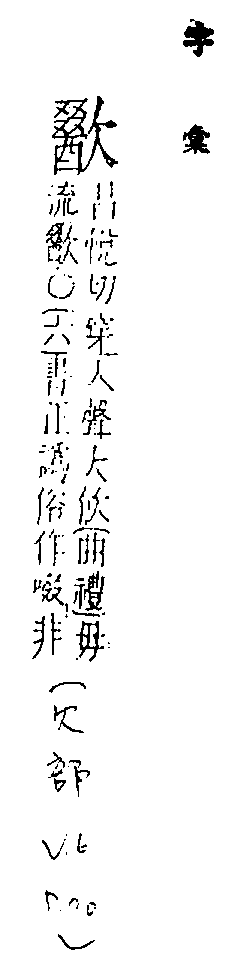 字彙
歠
昌悅切穿入聲大飲[曲禮]毋
流歠○[六書正譌]俗作啜非
(欠部 V.6